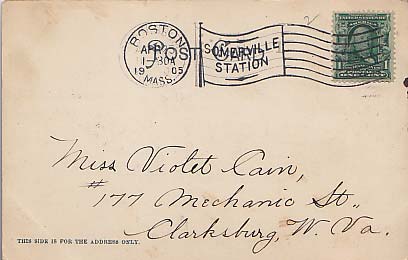 BOSTON
AP
1-30A
19 05
MASS.
POST CARD
SOMERVILLE
STATION
2
1
Miss Violet Cain,
#177 Mechanic St.,
Clarksburg, W. Va.
THIS SIDE IS FOR THE ADDRESS ONLY.